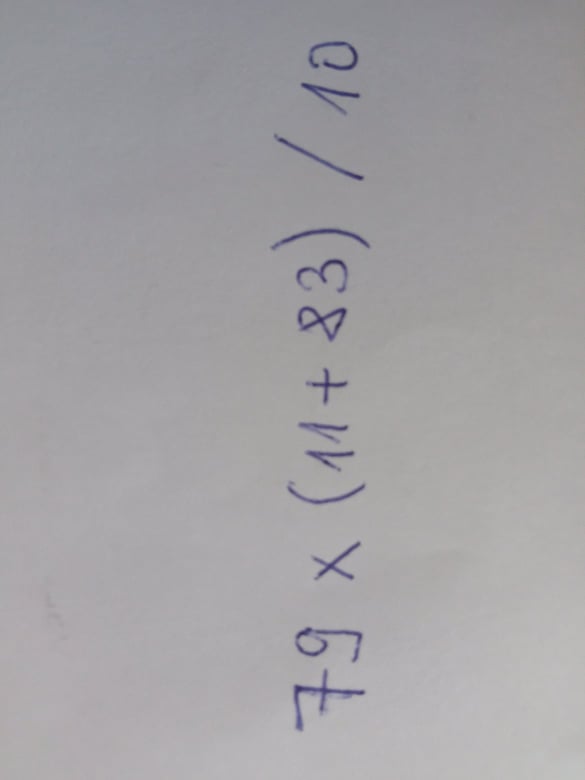 79 x (11 + 83) / 10